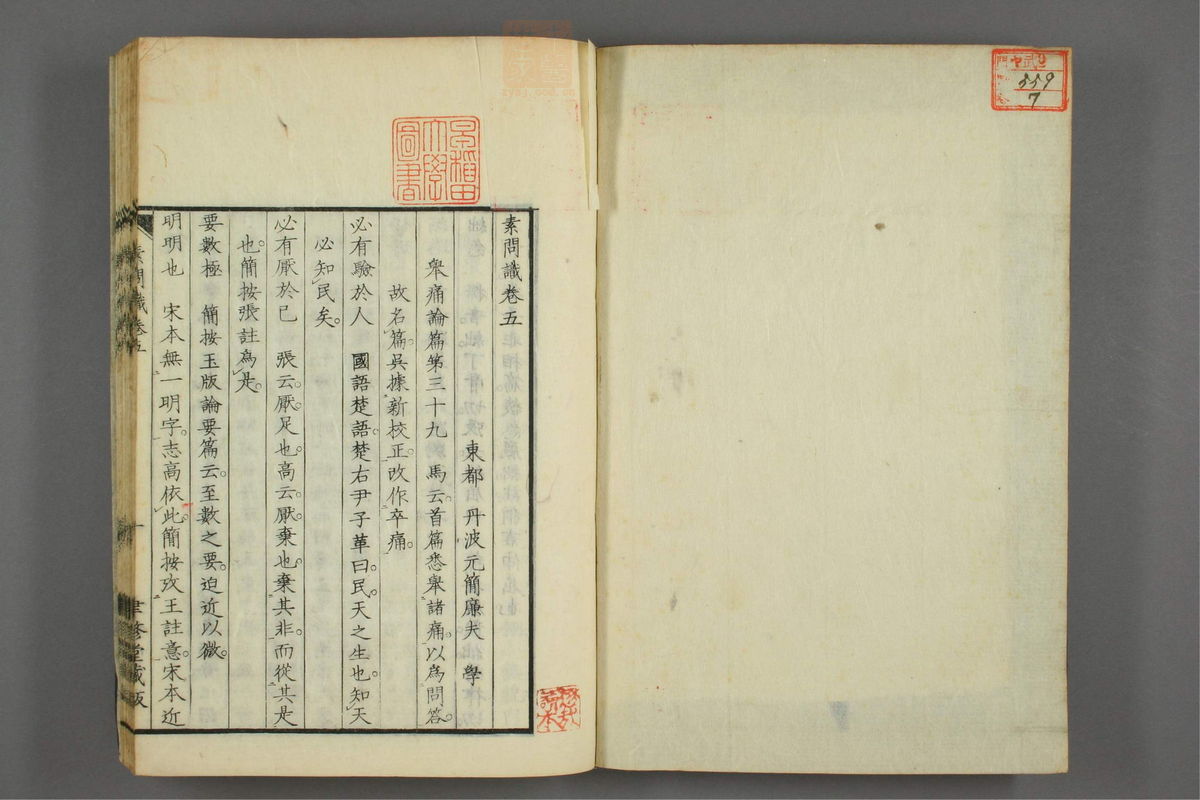 素問識卷五
東都 丹波元簡廉夫 學
舉痛論篇第三十九 馬云。首篇悉舉諸痛。以爲問答。
故名篇。吳據新校正。改作卒痛。
必有驗於人 國語楚語。楚右尹子革曰。民。天之生也。知天
必知民矣。
必有厭於已 張云。厭。足也。高云。厭。棄也。棄其非。而從其是
也。簡按張註爲是。
要數極 簡按玉版論要篇云。至數之要。迫近以微。
明明也 宋本無一明字。志高依此。簡按攷王註意。宋本近
素問識卷五
聿修堂藏版
早稲田大學圖書
559
7